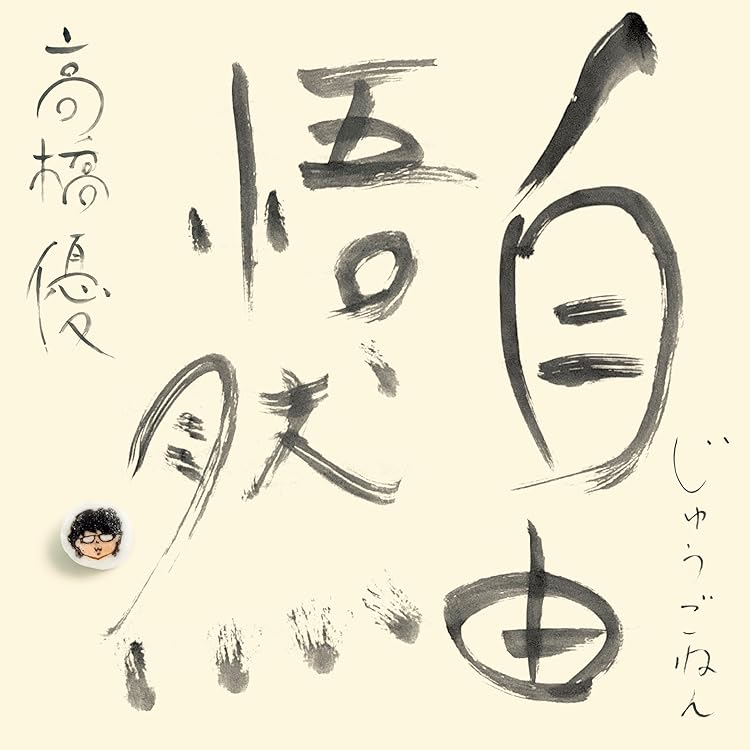 じゅうごねん
自由
悟然
高橋優